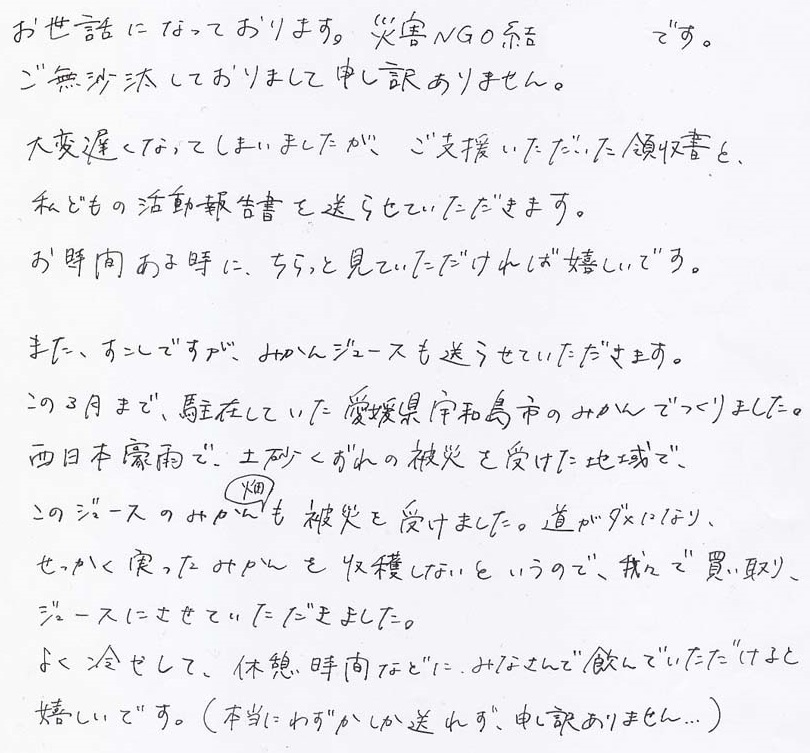 お世話になっております。災害NGO結 です。
ご無沙汰しておりまして申し訳ありません。
大変遅くなってしまいましたが、ご支援いただいた領収書と、
私どもの活動報告書を送らせていただきます。
お時間ある時に、ちらっと見ていただければ嬉しいです。
また、すこしですが、みかんジュースも送らせていただきます。
この3月まで、駐在していた愛媛県宇和島市のみかんでつくりました。
西日本豪雨で、土砂くずれの被災を受けた地域で、
このジュースのみかん畑も被災を受けました。道がダメになり、
せっかく実ったみかんを収穫しないというので、我々で買い取り、
ジュースにさせていただきました。
よく冷やして、休憩時間などに、みなさんで飲んでいただけると
嬉しいです。(本当にわずかしか送れず、申し訳ありません…)